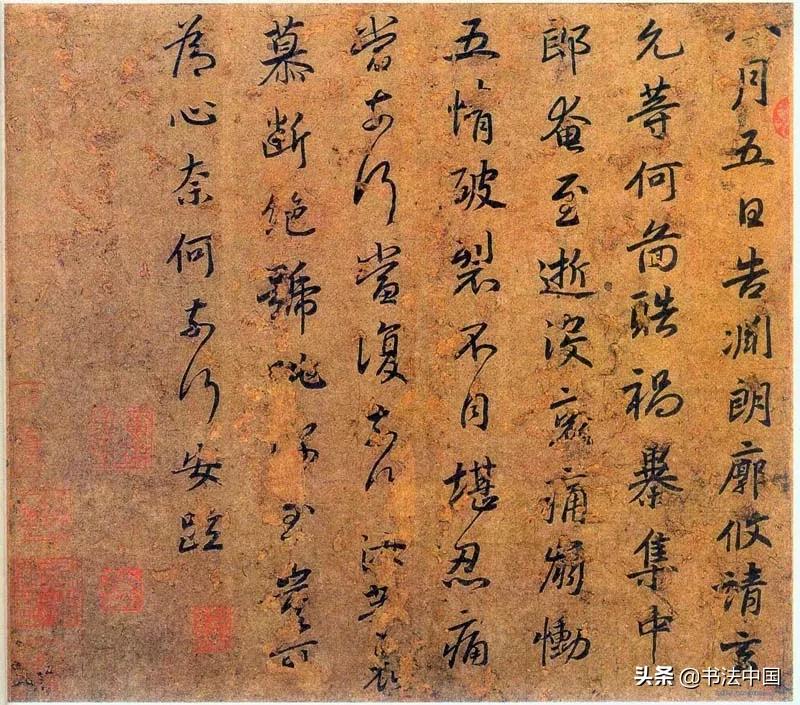 八月五日告淵朗廓攸靖玄
允等何圖酷禍暴集中
郎奄至逝沒哀痛崩慟
五情破裂不自堪忍痛
當奈何當復奈何汝等哀
慕斷絕號咷深至豈可
為心奈何奈何安疏
头条 @书法中国